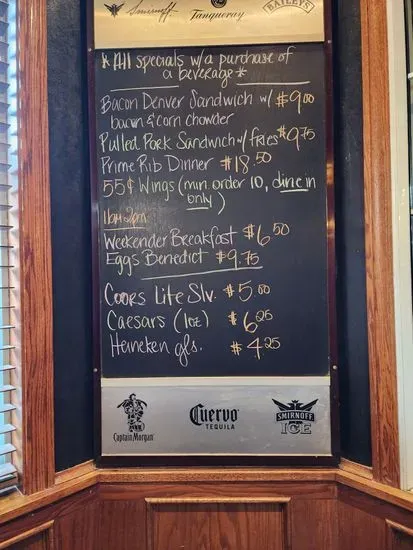 Smirnoff
Tanqueray
BAILEYS
*All specials w/a purchase of
a beverage*
Bacon Denver Sandwich w/ $9.00
bacon & corn chowder
Pulled Pork Sandwich w/ fries $9.75
Prime Rib Dinner $18.50
55¢ Wings (min. order 10, dine in
only)
11am-2pm
Weekender Breakfast $6.50
Eggs Benedict $9.75
Coors Lite Slv. $5.00
Caesars (1oz) $6.25
Heineken gls. $4.25
Captain Morgan
Cuervo
TEQUILA
SMIRNOFF
ICE